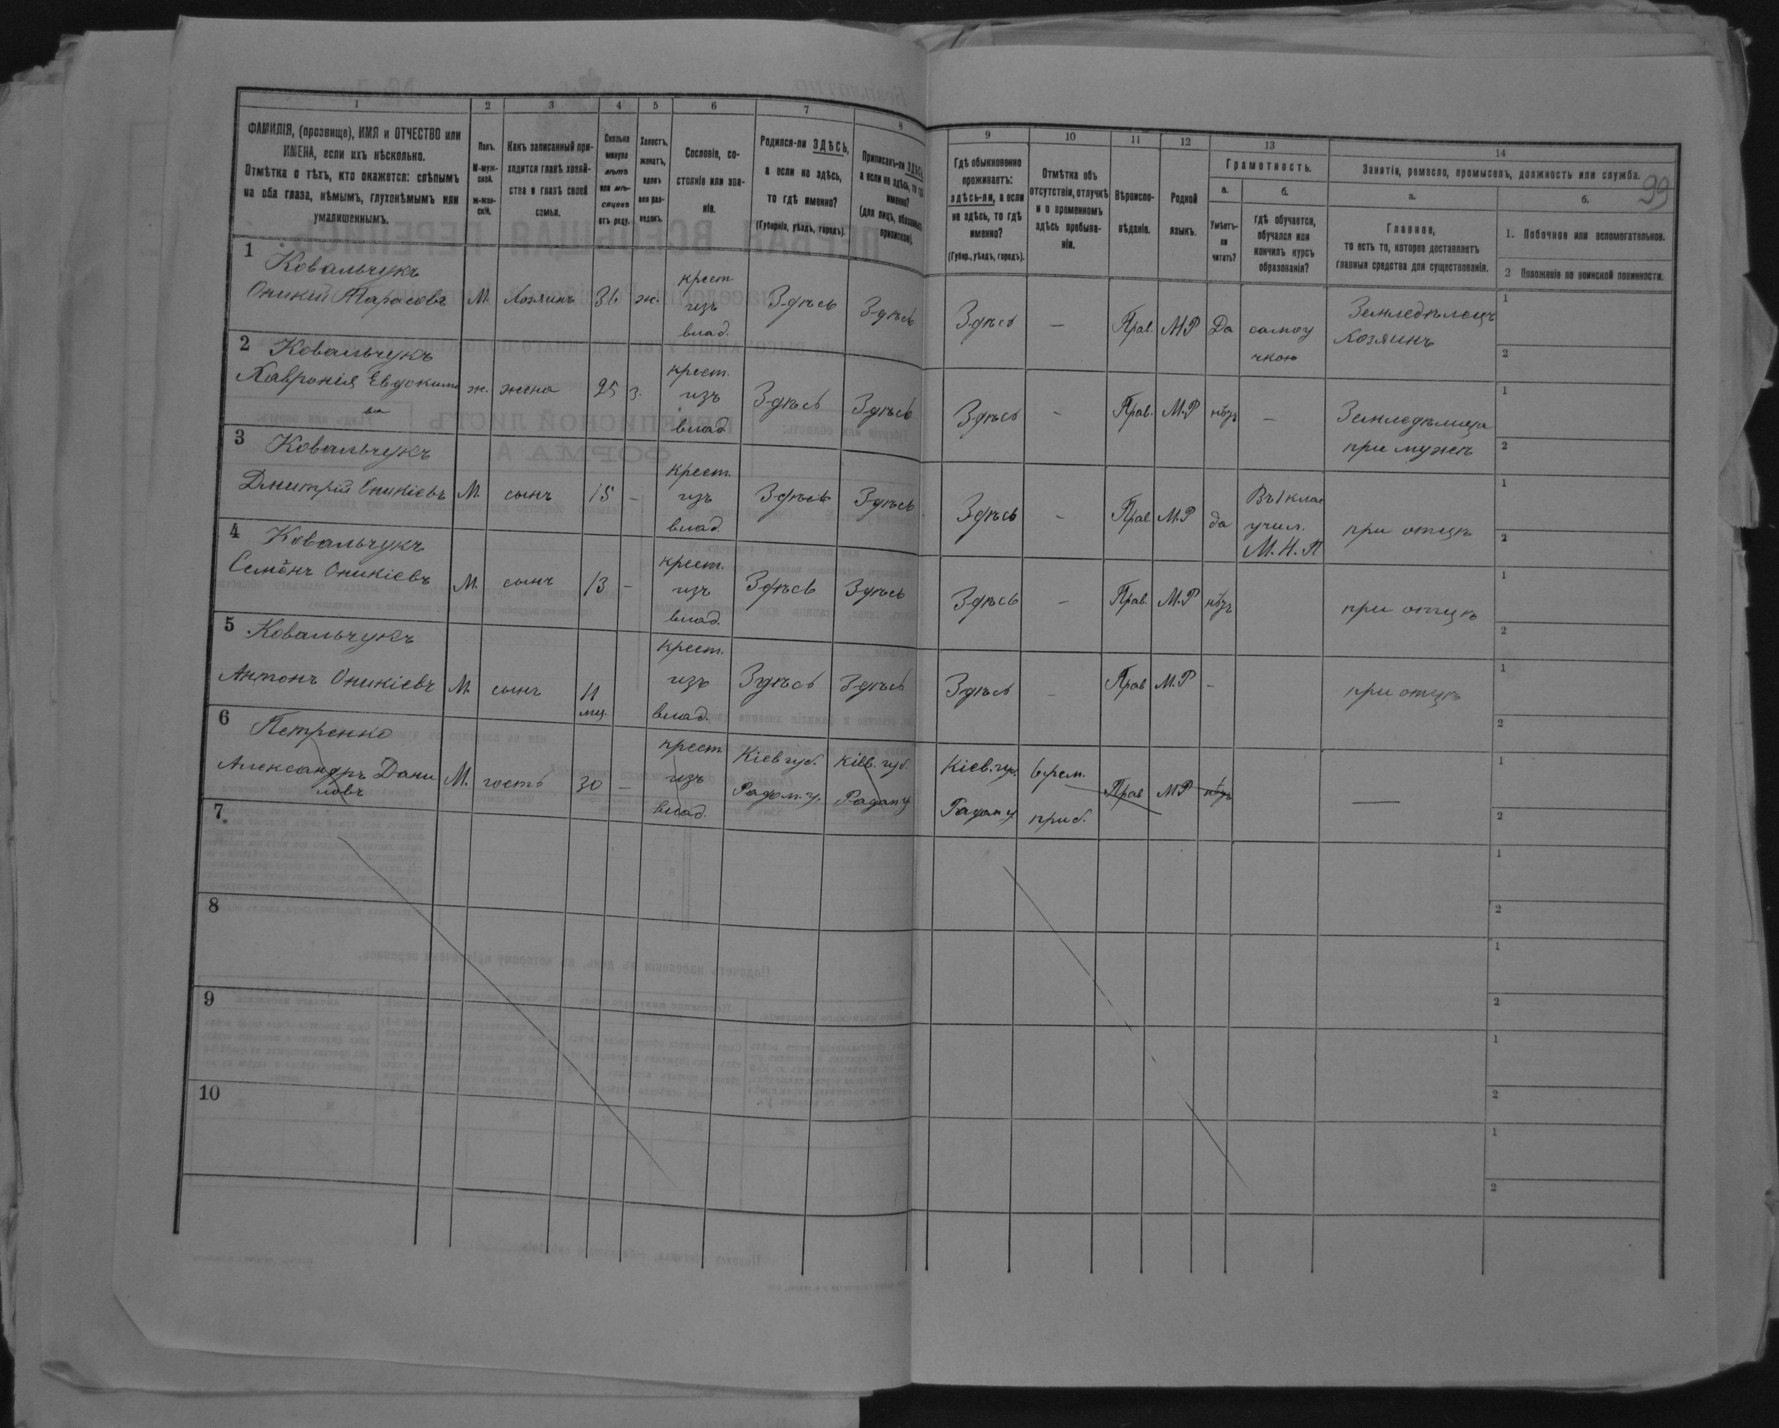 99
1 2 3 4 5 6 7 8 9 10 11 12 13 14
ФАМИЛІЯ, (прозвище), ИМЯ и ОТЧЕСТВО или
ИМЕНА, если ихъ нѣсколько.
Отмѣтка о тѣхъ, кто окажется: слѣпымъ
на оба глаза, нѣмымъ, глухонѣмымъ или
умалишеннымъ.
Полъ.
М-муж-
ской.
Ж-жен-
скій.
Какъ записанный при-
ходится главѣ хозяй-
ства и главѣ своей
семьи.
Сколько
минуло
лѣтъ
или мѣ-
сяцевъ
отъ роду.
Холостъ,
женатъ,
вдовъ
или раз-
веденъ.
Сословіе, со-
стояніе или зва-
ніе.
Родился-ли ЗДѢСЬ,
а если не здѣсь,
то гдѣ именно?
(Губернія, уѣздъ, городъ).
Приписанъ-ли ЗДѢСЬ,
а если не здѣсь, то гдѣ
именно?
(для лицъ, обязанныхъ
припискою).
Гдѣ обыкновенно
проживаетъ:
здѣсь-ли, а если
не здѣсь, то гдѣ
именно?
(Губер., уѣздъ, городъ).
Отмѣтка объ
отсутствіи, отлучкѣ
и о временномъ
здѣсь пребыва-
ніи.
Вѣроиспо-
вѣданіе.
Родной
языкъ.
Грамотность.
а.
Умѣетъ-
ли
читать?
б.
гдѣ обучается,
обучался или
кончилъ курсъ
образованія?
Занятіе, ремесло, промыселъ, должность или служба.
а.
Главное,
то есть то, которое доставляетъ
главныя средства для существованія.
б.
1. Побочное или вспомогательное.
2 Положеніе по воинской повинности.
1 Ковальчукъ
Оникій Тарасовъ М. Хозяинъ 36 ж. крест изъ влад. Здѣсь Здѣсь Здѣсь — Прав. М.Р Да самоу чкою Земледѣлецъ хозяинъ 1 2
2 Ковальчукъ
Хавронія Евдокимо ва ж. жена 25 з. крест. изъ влад Здѣсь Здѣсь Здѣсь - Прав. М.Р нѣтъ — Земледѣлица при мужѣ 1 2
3 Ковальчукъ
Дмитрій Оникіевъ М. сынъ 15 - крест. изъ влад Здѣсь Здѣсь Здѣсь - Прав. М.Р да Въ 1 клас учил. М.Н.П при отцѣ 1 2
4 Ковальчукъ
Семёнъ Оникіевъ М. сынъ 13 - крест. изъ влад. Здѣсь Здѣсь Здѣсь — Прав. М.Р нѣтъ при отцѣ 1 2
5 Ковальчукъ
Антонъ Оникіевъ М. сынъ 11 мц. крест. изъ влад. Здѣсь Здѣсь Здѣсь - Прав М.Р - при отцѣ 1 2
6 Петренко
Александръ Дани ловъ М. гость 30 — крест изъ влад. Кіев губ. Радом. у. Кіев. губ. Радом у Кіев. гу. Радом у врем. приб. Прав М.Р нѣтъ — 1 2
7 1 2
8 1 2
9 1 2
10 1 2